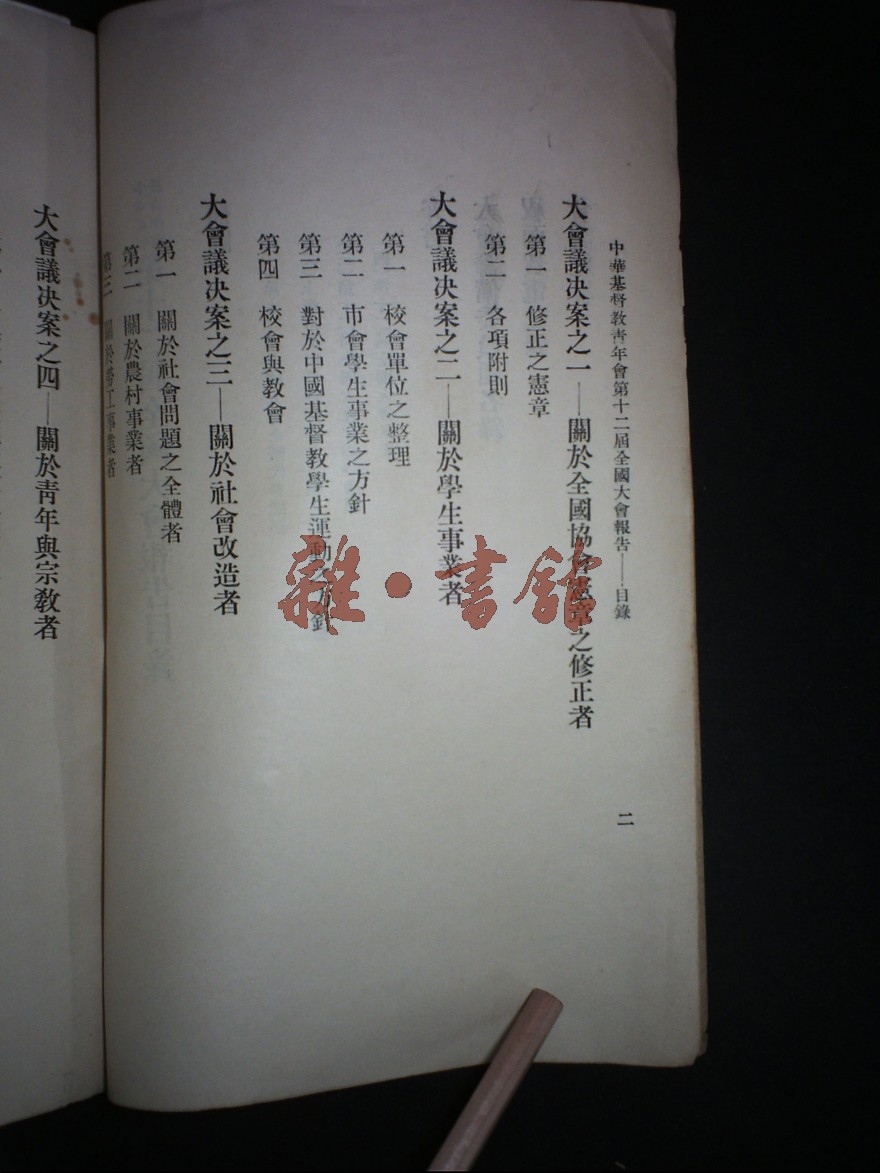 中華基督教靑年會第十二屆全國大會報告——目錄
二
大會議決案之一——關於全國協會憲章之修正者
第一 修正之憲章
第二 各項附則
大會議決案之二——關於學生事業者
第一 校會單位之整理
第二 市會學生事業之方針
第三 對於中國基督教學生運動之方針
第四 校會與教會
大會議決案之三——關於社會改造者
第一 關於社會問題之全體者
第二 關於農村事業者
第三 關於勞工事業者
大會議決案之四——關於靑年與宗教者
雜·書館